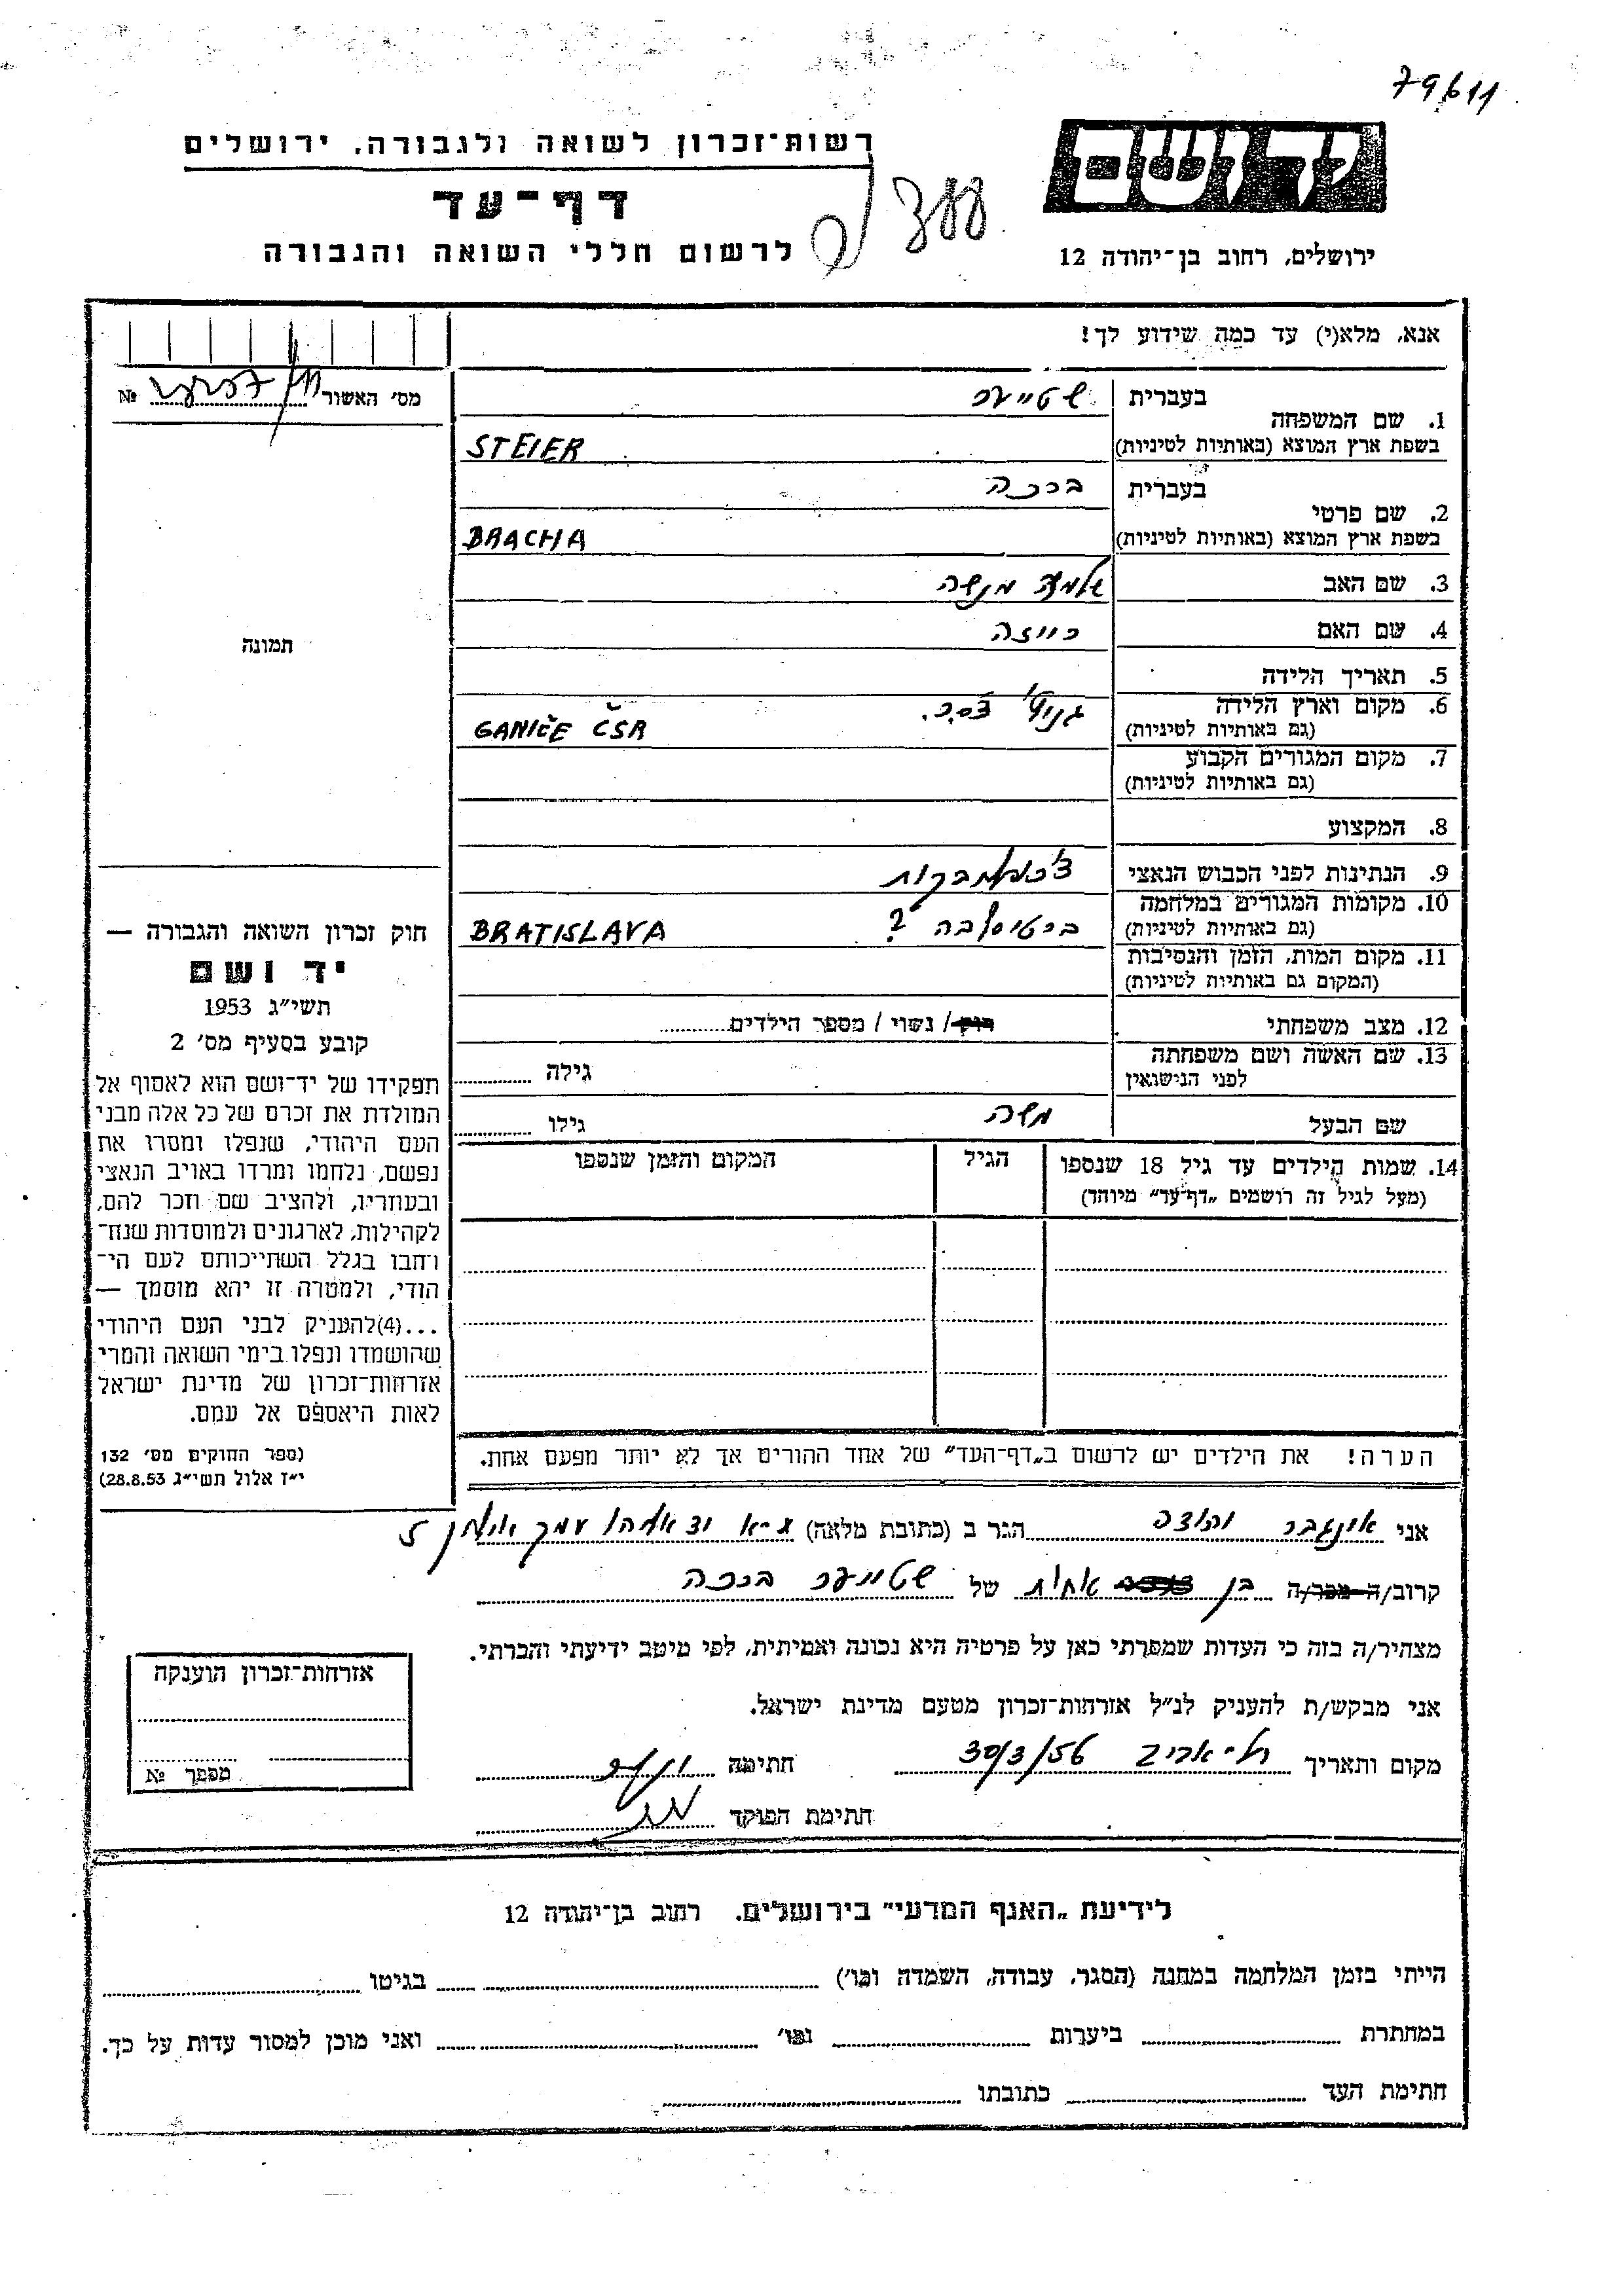 79611
רשות־זכרון לשואה ולגבורה, ירושלים
יד ושם
דף־עד
לרשום חללי השואה והגבורה
ירושלים, רחוב בן־יהודה 12
אנא, מלא(י) עד כמה שידוע לך!
מס' האשור № 
1. שם המשפחה בעברית שטייער
בשפת ארץ המוצא (באותיות לטיניות) STEIER
2. שם פרטי בעברית ברכה
בשפת ארץ המוצא (באותיות לטיניות) BRACHA
3. שם האב שלמה מנשה
4. שם האם רייזה
5. תאריך הלידה
6. מקום וארץ הלידה (גם באותיות לטיניות) צ.ס.ר. GANIČE ČSR
7. מקום המגורים הקבוע (גם באותיות לטיניות)
8. המקצוע
9. הנתינות לפני הכבוש הנאצי
10. מקומות המגורים במלחמה (גם באותיות לטיניות) ברטיסלבה ? BRATISLAVA
11. מקום המות, הזמן והנסיבות (המקום גם באותיות לטיניות)
12. מצב משפחתי רוק/ נשוי / מספר הילדים
13. שם האשה ושם משפחתה לפני הנישואין גילה
שם הבעל משה גילו
14. שמות הילדים עד גיל 18 שנספו הגיל המקום והזמן שנספו
(מעל לגיל זה רושמים „דף־עד" מיוחד)
הערה! את הילדים יש לרשום ב„דף־העד" של אחד ההורים אך לא יותר מפעם אחת.
תמונה
חוק זכרון השואה והגבורה —
יד ושם
תשי"ג 1953
קובע בסעיף מס' 2
תפקידו של יד־ושם הוא לאסוף אל
המולדת את זכרם של כל אלה מבני
העם היהודי, שנפלו ומסרו את
נפשם, נלחמו ומרדו באויב הנאצי
ובעוזריו, ולהציב שם וזכר להם,
לקהילות, לארגונים ולמוסדות שנח־
רחבו בגלל השתייכותם לעם הי־
הודי, ולמטרה זו יהא מוסמך —
...(4)להעניק לבני העם היהודי
שהושמדו ונפלו בימי השואה והמרי
אזרחות־זכרון של מדינת ישראל
לאות היאספם אל עמם.
(ספר החוקים מס' 132
י"ז אלול תשי"ג 28.8.53)
אני אינגבר הגר ב (כתובת מלאה) ת־א
קרוב/ה מכר/ה בן אחות של שטייער ברכה
מצהיר/ה בזה כי העדות שמסרתי כאן על פרטיה היא נכונה ואמיתית, לפי מיטב ידיעתי והכרתי.
אני מבקש/ת להעניק לנ"ל אזרחות־זכרון מטעם מדינת ישראל.
מקום ותאריך תל־אביב 30/3/56 חתימה
חתימת הפוקד
אזרחות־זכרון הוענקה
מספר №
לידיעת „האגף המדעי" בירושלים. רחוב בן־יהודה 12
הייתי בזמן המלחמה במחנה (הסגר, עבודה, השמדה וכו') בגיטו
במחתרת ביערות וכו' ואני מוכן למסור עדות על כך.
חתימת העד כתובתו